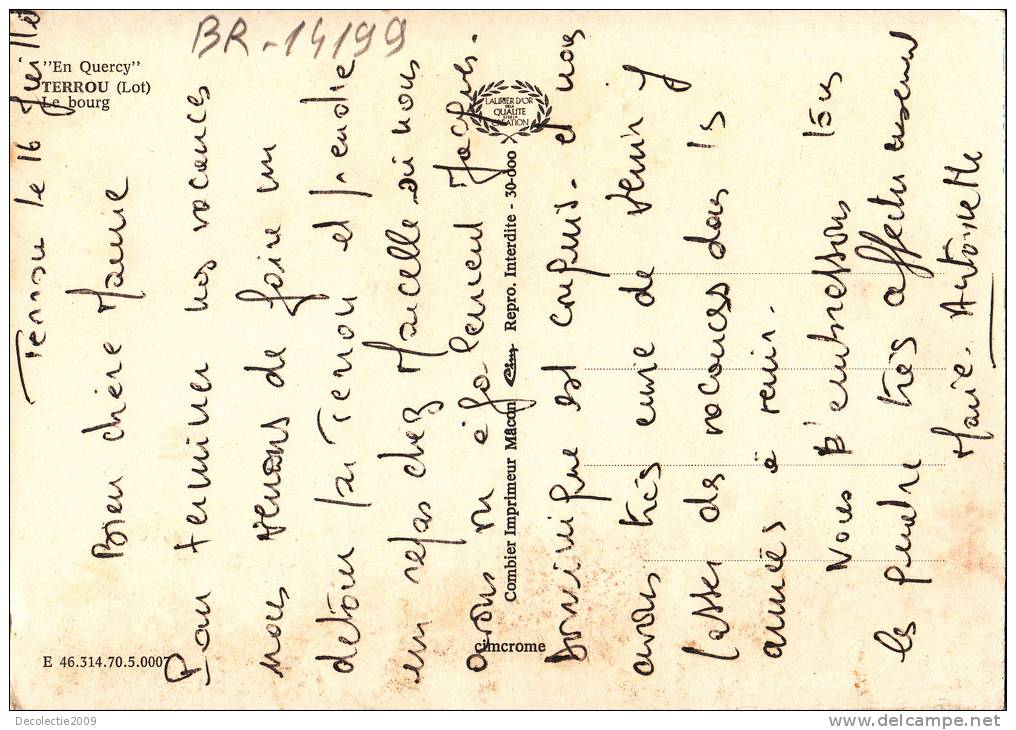 BR-14199
"En Quercy"
TERROU (Lot)
Le bourg
LAURIER D'OR
DE LA
QUALITE
ET DE LA
CREATION
Combier Imprimeur Mâcon Cim Repro. Interdite - 30-000
cimcrome
E 46.314.70.5.0007
Terrou le 16 Juillet
Bien chère Mamie
Pour terminer nos vacances
nous venons de faire un
detour par Terrou et prendre
un repas chez Marcelle où nous
avons vu également Jacques.
est conquis. et nous
avons très envie de venir y
passer des vacances dans les
années à venir.
Vous embrassons tous
les très affectueusement
Marie. Antoinette
Decolectie2009
www.delcampe.net